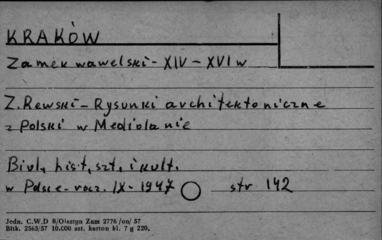 KRAKÓW
Zamek wawelski - XIV - XVI w
Z. Rewski - Rysunki architektoniczne
z Polski w Mediolanie
Biul. hist. szt. i kult.
w Polsce - rocz. IX - 1947 str 142
Jedn. C.W.D 8/Olsztyn Zam 2776 /on/ 57
Bltk. 2565/57 10.000 szt. karton kl. 7 g 220.